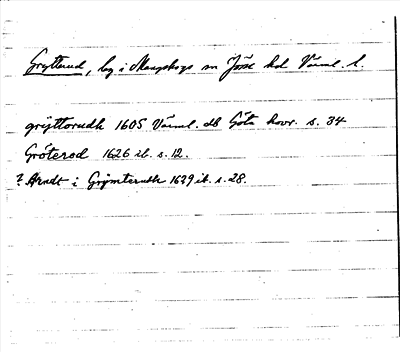 Grytterud, lng i Mangskogs sn Jösse hd Värml. l.
grijttorudh 1605 Värml. db Göta hovr. s. 34
Gröterod 1626 ib. s. 12.
? Arndt i Grijmterudh 1629 ib. s. 28.